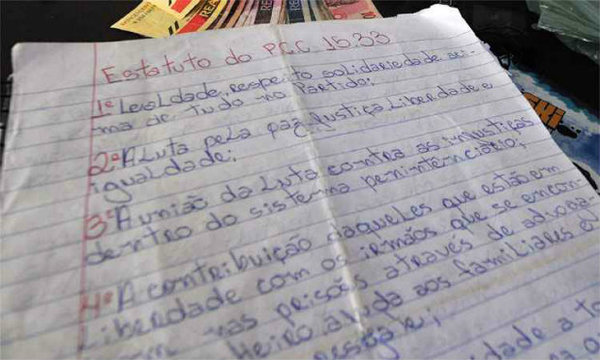 REA
REA
Estatuto do PCC 15.33
1º Lealdade, respeito solidariedade aci-
ma de tudo no Partido;
2º A Luta pela paz, justiça Liberdade e
igualdade;
3º A união da Luta contra as injustiças
dentro do sistema penintenciário;
4º A contribuição daqueles que estão em
Liberdade com os irmãos que se encon-
nas prisões através de advoga
heiro ajuda aos familiares e
resgate;
idade a to